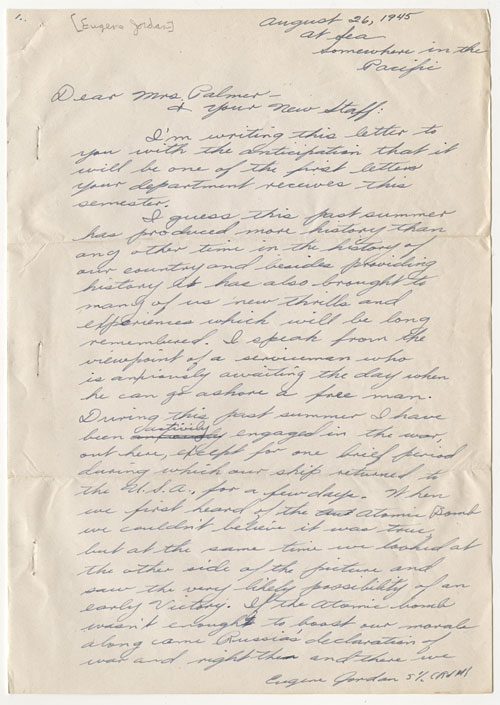 [Eugene Jordan]
August 26, 1945
at Sea
Somewhere in the
Pacific
Dear Mrs. Palmer -
& Your New Staff:
I'm writing this letter to
you with the anticipation that it
will be one of the first letters
your department receives this
semester.
I guess this past summer
has produced more history than
any other time in the history of
our country and besides providing
history it has also brought to
many of us new thrills and
experiences which will be long
remembered. I speak from the
viewpoint of a serviceman who
is anxiously awaiting the day when
he can go ashore a free man.
During this past summer I have
actively
been engaged in the war,
out here, except for one brief period
during which our ship returned to
the U.S.A., for a few days. When
we first heard of the Atomic Bomb
we couldn't believe it was true
but at the same time we looked at
the other side of the picture and
saw the very likely possibility of an
early Victory. If the Atomic bomb
wasn't enough to boost our morale
along came Russia's declaration of
war and right then and there we
Eugene Jordan S 1/c (RM)